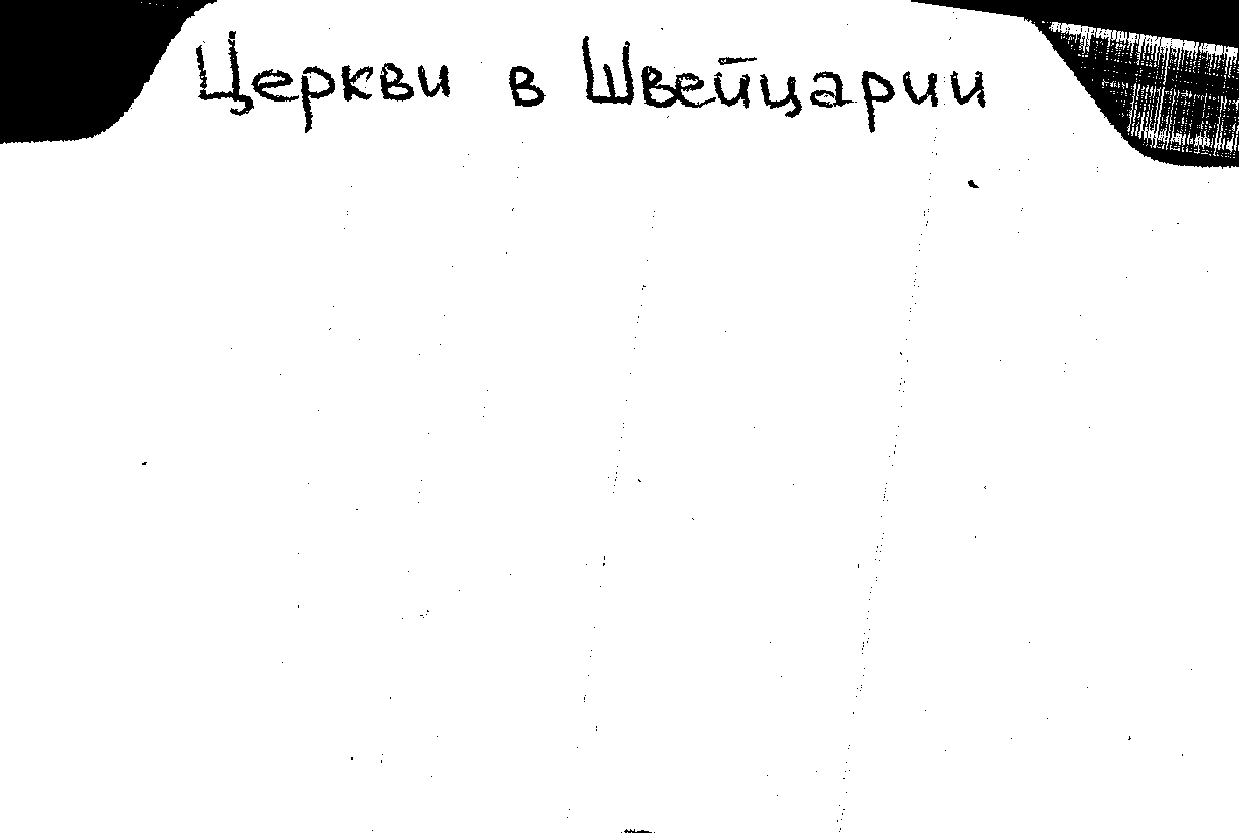 Церкви в Швейцарии